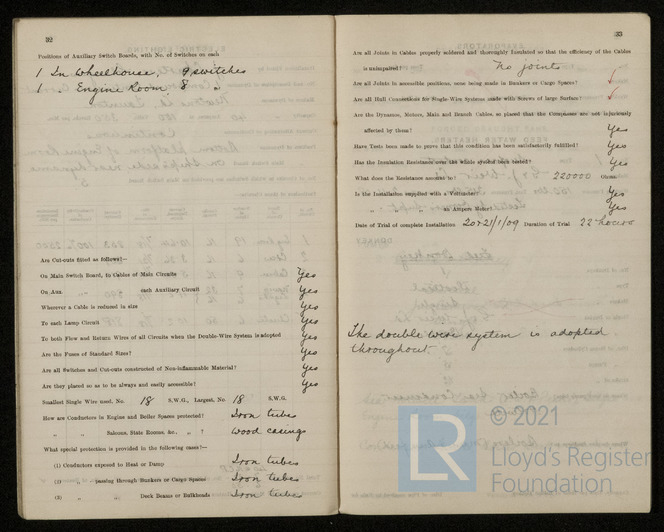 32
Positions of Auxiliary Switch Boards, with No. of Switches on each
1 In Wheelhouse, 9 switches
1 " Engine Room, 8 "
Are Cut-outs fitted as follows:—
On Main Switch Board, to Cables of Main Circuits Yes
On Aux. " " each Auxiliary Circuit Yes
Wherever a Cable is reduced in size Yes
To each Lamp Circuit Yes
To both Flow and Return Wires of all Circuits when the Double-Wire System is adopted Yes
Are the Fuses of Standard Sizes? Yes
Are all Switches and Cut-outs constructed of Non-inflammable Material? Yes
Are they placed so as to be always and easily accessible? Yes
Smallest Single Wire used, No. 18 S.W.G., Largest, No. 18 S.W.G.
How are Conductors in Engine and Boiler Spaces protected? Iron tubes
" " Saloons, State Rooms, &c., " ? Wood casings
What special protection is provided in the following cases:—
(1) Conductors exposed to Heat or Damp Iron tubes
(2) " passing through Bunkers or Cargo Spaces Iron tubes
(3) " " Deck Beams or Bulkheads Iron tubes
33
Are all Joints in Cables properly soldered and thoroughly insulated so that the efficiency of the Cables
is unimpaired? No joints
Are all Joints in accessible positions, none being made in Bunkers or Cargo Spaces? ✓
Are all Hull Connections for Single-Wire Systems made with Screws of large Surface? ✓
Are the Dynamos, Motors, Main and Branch Cables, so placed that the Compasses are not injuriously
affected by them? Yes
Have Tests been made to prove that this condition has been satisfactorily fulfilled? Yes
Has the Insulation Resistance over the whole system been tested? Yes
What does the Resistance amount to? 220000 Ohms.
Is the Installation supplied with a Voltmeter? Yes
" " an Ampere Meter? Yes
Date of Trial of complete Installation 20 & 21/1/09 Duration of Trial 22 hours
The double wire system is adopted
throughout.
LR
© 2021
Lloyd's Register
Foundation